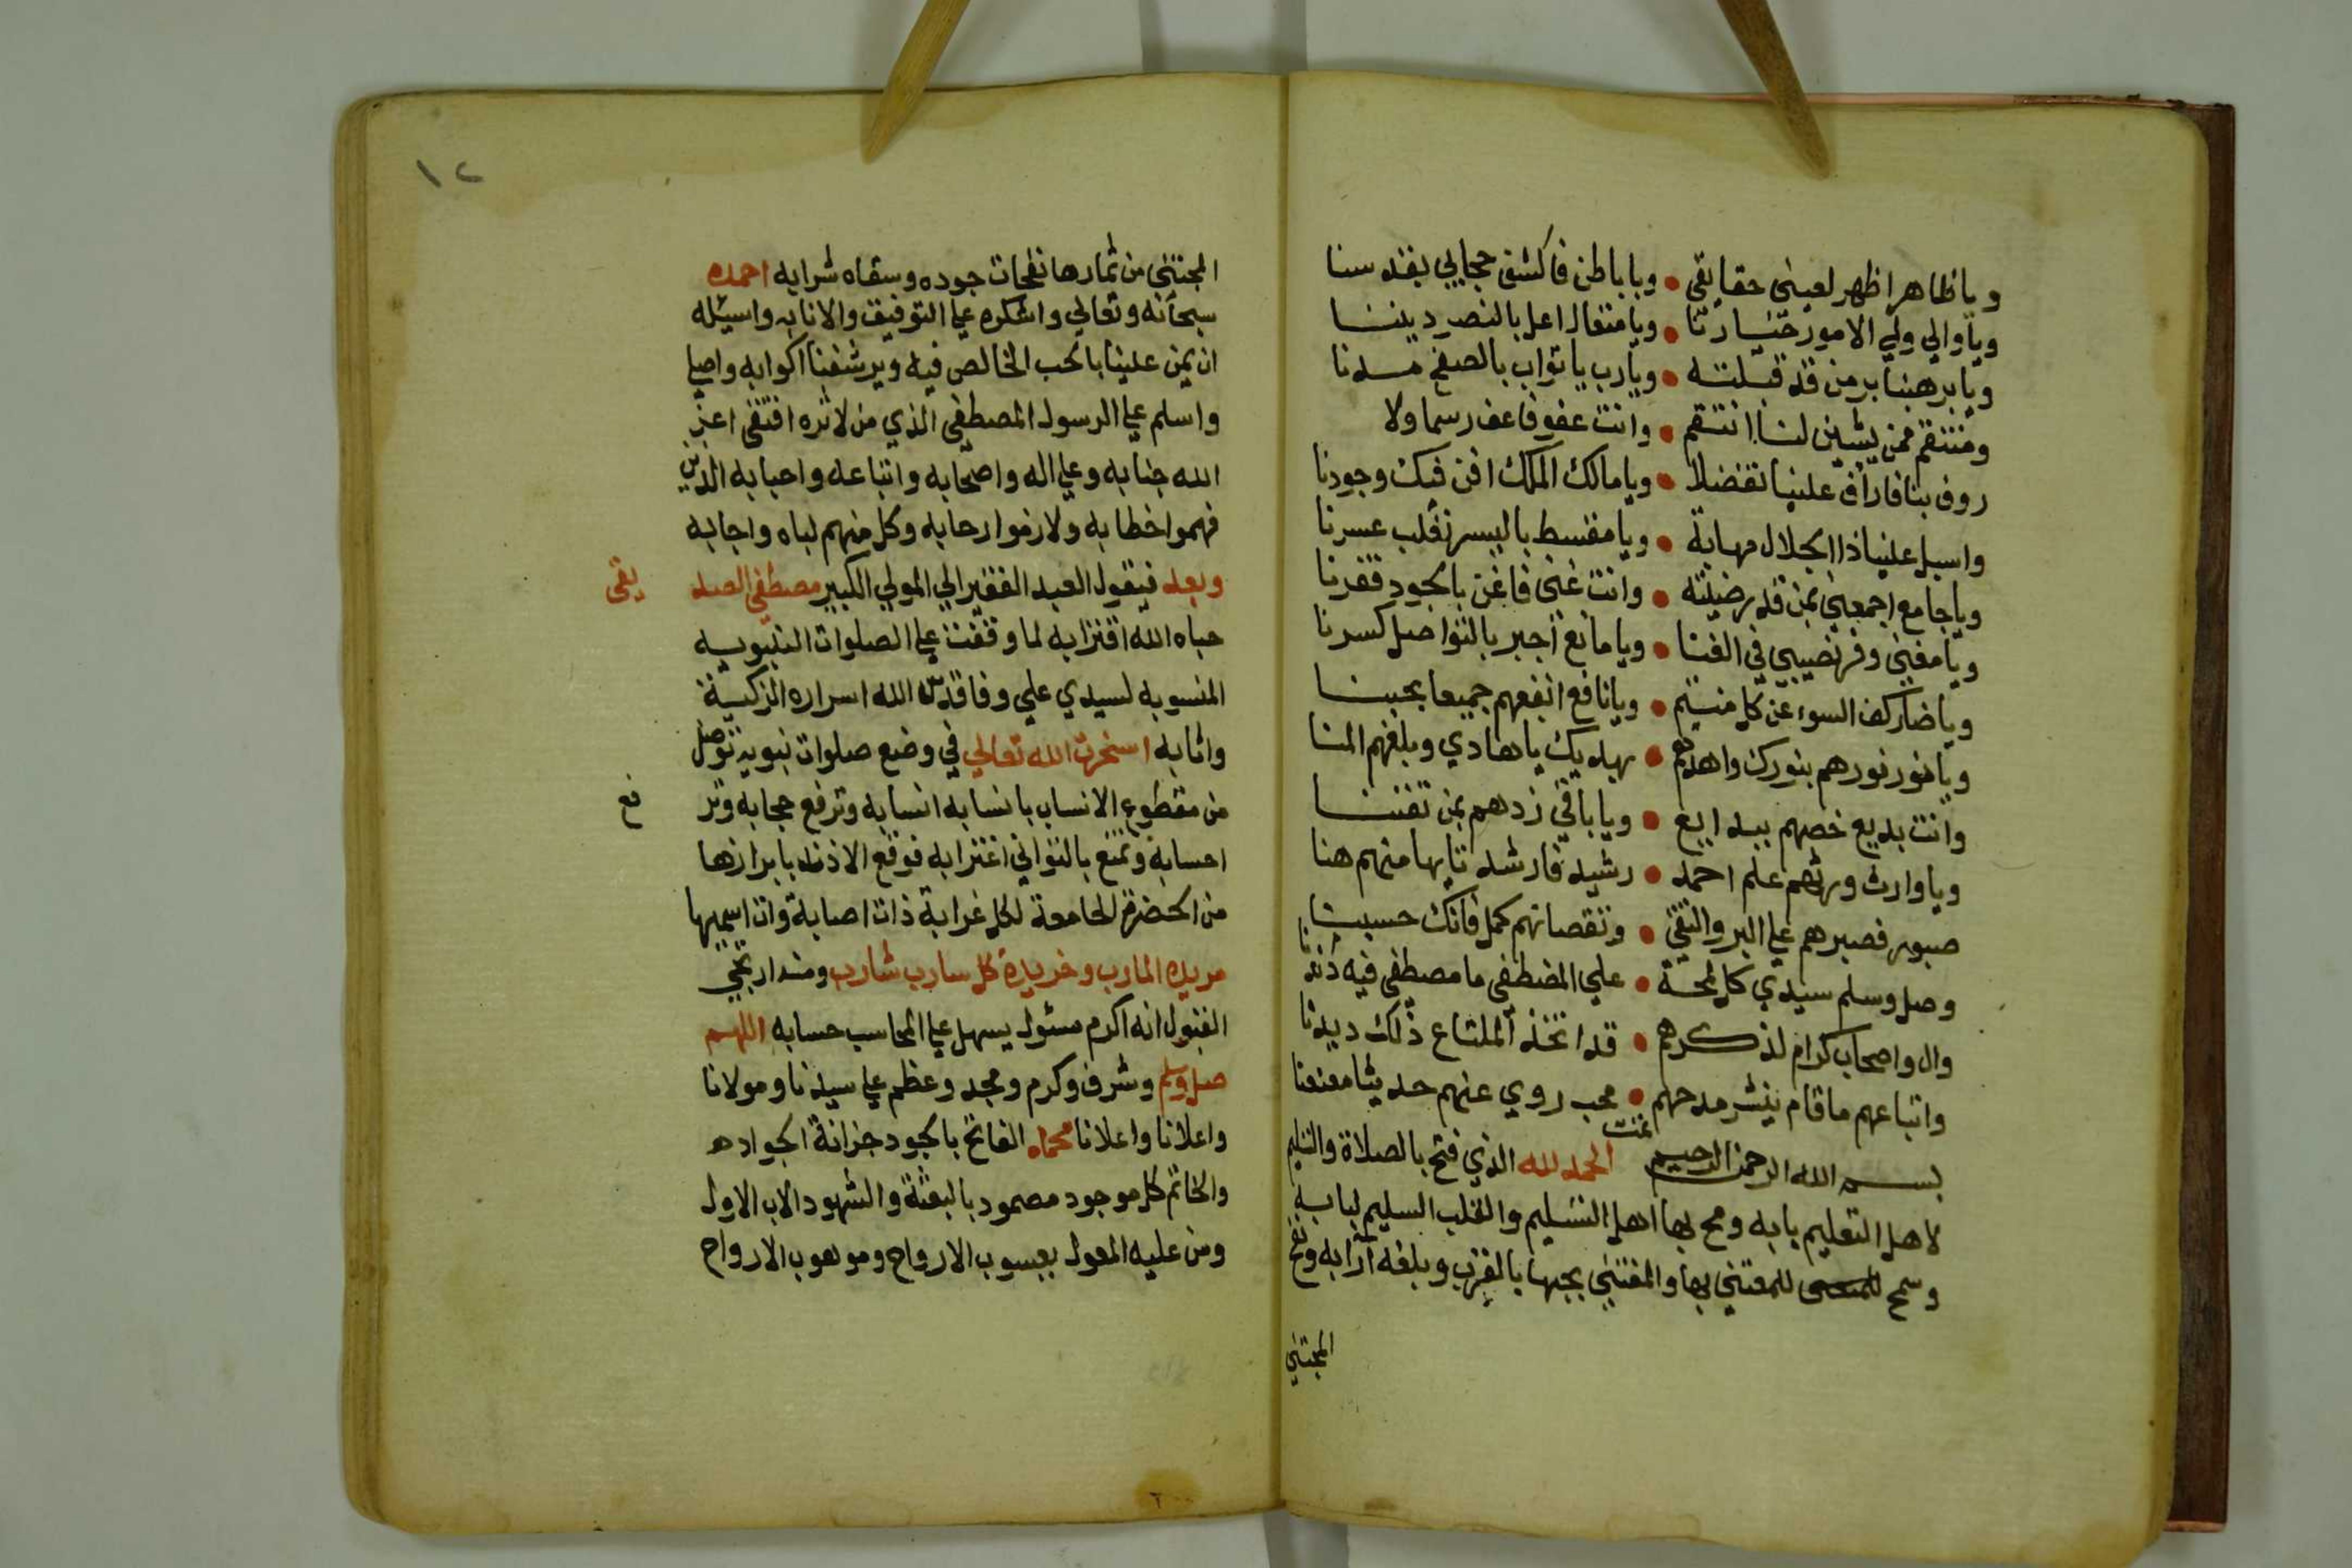 ويا ظاهرا ظهر لعيني حقايقي • ويا باطن فاكشف حجابي بقدسنا
ويا والي ولي الامور خيارنا • ويا متعال اعل بالنصر ديننا
ويا بر هبنا بر من قد قبلته • ويا رب يا تواب بالصفح مسدنا
ومنتقم ممن يشين لنا انتقم • وانت عفو فاعف رسما ولا
روف بنا فاراف علينا تفضلا • ويا مالك الملك افن فيك وجودنا
واسبل علينا ذا الجلال مهابة • ويا مقسط باليسر نقلب عسرنا
ويا جامع اجمعني بمن قد رضيته • وانت غني فاغن بالجود فقرنا
ويا مغني وفر نصيبي في الفنا • ويا مانع اجبر بالتواصل كسرنا
ويا ضار كف السوء عن كل منتم • ويا نافع انفعهم جميعا بحبنا
ويا نور نورهم بنورك واهدهم • بهديك يا هادي وبلغهم المنا
وانت بديع خصهم ببدايع • ويا باقي زدهم بمن تفننا
ويا وارث ورثهم علم احمد • رشيد فارشد تايها منهم هنا
صبور فصبرهم علي البر والتقي • ونقصانهم كمل فانك حسبنا
وصل وسلم سيدي كل لمحة • علي المصطفي ما مصطفي فيه اذنا
وال واصحاب كرام لذكرهم • قد اتخذ الملتاع ذلك ديدنا
واتباعهم ما قام ينشر مدحهم • محب روي عنهم حديثا معنعنا
تمت
بسم الله الرحمن الرحيم الحمد لله الذي فتح بالصلاة والتسليم
لاهل التعليم بابه ومح بها اهل التسليم والقلب السليم لبابه
وسمح للمعتني بها والمقتني بحبها بالقرب وبلغه ارابه ونفح
المجتني
١٢
المجتني من ثمارها نفحات جوده وسقاه شرابه احمده
سبحانه وتعالي واشكره علي التوفيق والانابه واسيله
ان يمن علينا بالحب الخالص فيه ويرشفنا اكوابه واصلي
واسلم علي الرسول المصطفي الذي من لاثره اقتفي اعز
الله جنابه وعلي اله واصحابه واتباعه واحبابه الذين
فهموا خطابه ولازموا رحابه وكل منهم لباه واجابه
وبعد فيقول العبد الفقير الي المولي الكبير مصطفي الصد يقي
حباه الله اقترابه لما وقفت علي الصلوات النبويه
المنسوبه لسيدي علي وفا قدس الله اسراره الزكية
واثابه استخرت الله تعالي في وضع صلوات نبوية توصل
من مقطوع الانساب بانسابه انسابه وترفع حجابه وتر فع
احسابه وتمنع بالتواني اغترابه فوقع الاذن بابرازها
من الحضرة الجامعة لكل غرابة ذات اصابة وان اسميها
مريده المارب وخريدة كل سارب شارب ومنه ارتجي
القبول انه اكرم مسئول يسهل علي المحاسب حسابه اللهم
صل وسلم وشرف وكرم ومجد وعظم علي سيدنا ومولانا
واعلانا واعلانا محمد الفاتح بالجود خزانة الجواده
والخاتم كل موجود مصمود بالبعثة والشهود الاب الاول
ومن عليه المعول يعسوب الارواح وموهوب الارواح